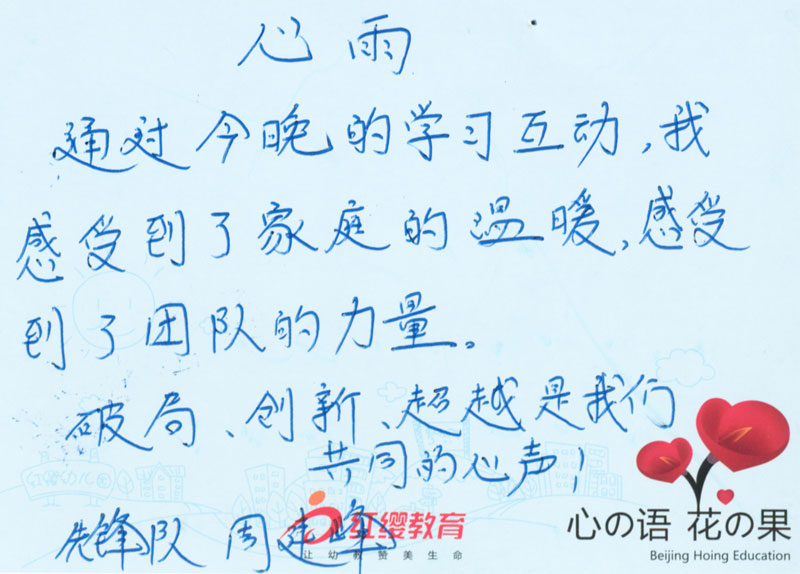 心雨
通过今晚的学习互动,我
感受到了家庭的温暖,感受
到了团队的力量。
破局、创新、超越是我们
共同的心声!
先锋队 周建峰
红缨教育
让幼教赞美生命
心の语 花の果
Beijing Hoing Education